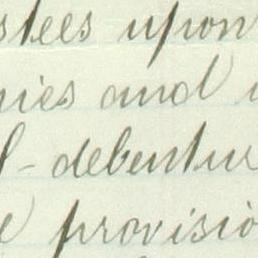 stees upon
nies and
- debentur
provisio